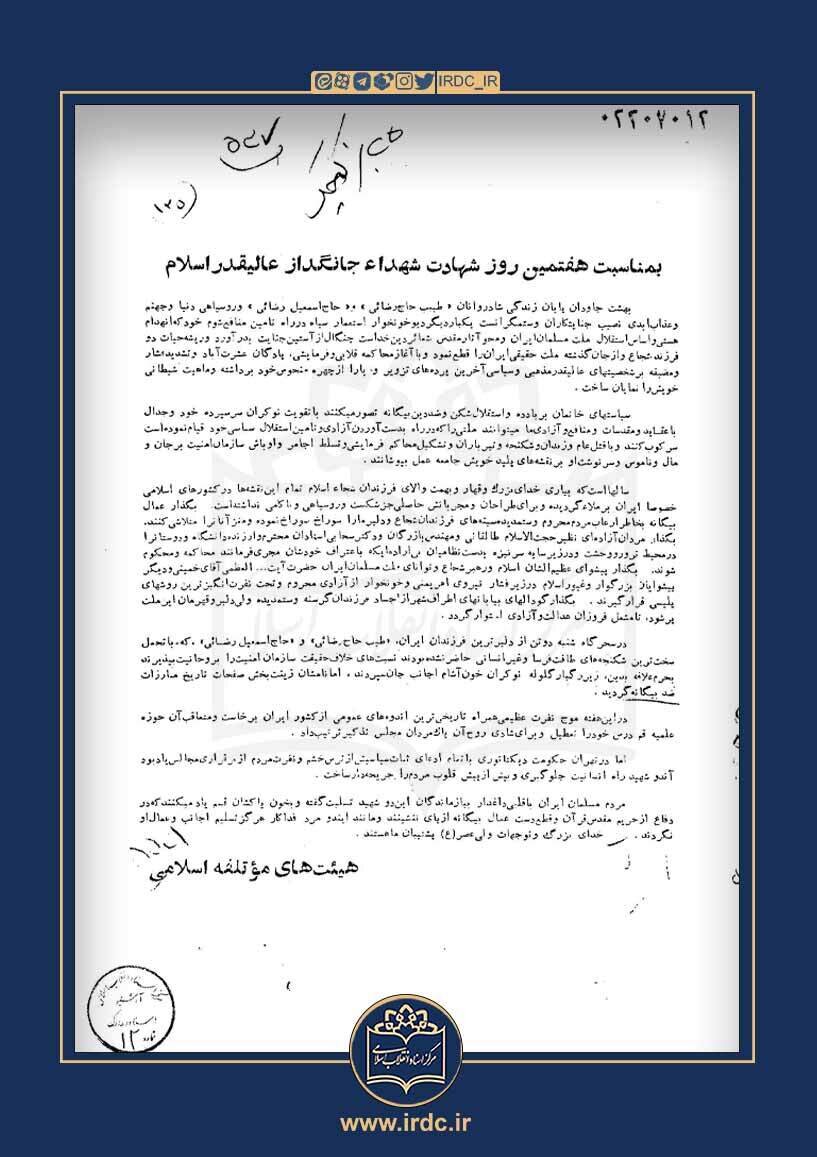 IRDC_IR
۰۲۲۰۷۰۱۲
۵۴۷
(۱۳۵
بمناسبت هفتمین روز شهادت شهداء جانگداز عالیقدر اسلام
بهشت جاودان پایان زندگی شادروانان «طیب حاج رضائی» و «حاج اسمعیل رضائی» و روسیاهی دنیا و جهنم
و عذاب ابدی نصیب جنایتکاران و ستمگرانست یکبار دیگر دیو خونخوار استعمار سیاه در راه تامین منافع شوم خود که انهدام
هستی و اساس استقلال ملت مسلمان ایران و محو آثار مقدس شعائر دین خداست چنگال از آستین جنایت بدر آورد و ریشه حیات دو
فرزند شجاع و از جان گذشته ملت حقیقی ایران را قطع نمود و با آغاز محاکمه قلابی و فرمایشی، پادگان عشرت آباد و تشدید فشار
و مضیقه بر شخصیتهای عالیقدر مذهبی و سیاسی آخرین پرده‌های تزویر و ریا را از چهره منحوس خود برداشته و ماهیت شیطانی
خویش را نمایان ساخت .
سیاستهای خانمان بر باد ده و استقلال شکن و ضد دین بیگانه تصور میکنند با تقویت نوکران سرسپرده خود و جدال
با عقاید و مقدسات و منافع و آزادی‌ها میتوانند ملتی را که در راه بدست آوردن آزادی و تامین استقلال سیاسی خود قیام نموده است
سرکوب کنند و با قتل عام و زندان و شکنجه و تیرباران و تشکیل محاکم فرمایشی و تسلط اجامر و اوباش سازمان امنیت بر جان و
مال و ناموس و سرنوشت او بر نقشه‌های پلید خویش جامه عمل بپوشانند .
سالها است که بیاری خدای بزرگ و قهار و بهمت والای فرزندان شجاع اسلام تمام این نقشه‌ها در کشورهای اسلامی
خصوصا ایران بر ملاء گردیده و برای طراحان و مجریانش حاصلی جز شکست و روسیاهی و ناکامی نداشته است . بگذار عمال
بیگانه بخاطر ارعاب مردم محروم و ستمدیده سینه‌های فرزندان شجاع و دلیر ما را سوراخ سوراخ نموده و مغز آنانرا متلاشی کنند.
بگذار مردان آزاده‌ای نظیر حجت الاسلام طالقانی و مهندس بازرگان و دکتر سحابی استادان محترم و ارزنده دانشگاه و دوستانرا
در محیط ترور و وحشت و در زیر سایه سرنیزه بدست نظامیان بی‌اراده‌ایکه باعتراف خودشان مجری فرمانند محاکمه و محکوم
شوند. بگذار پیشوای عظیم الشان اسلام و رهبر شجاع و توانای ملت مسلمان ایران حضرت آیت... العظمی آقای خمینی و دیگر
پیشوایان بزرگوار و غیور اسلام در زیر فشار نیروی اهریمنی و خونخوار از آزادی محروم و تحت نفرت انگیزترین روشهای
پلیسی قرار گیرند . بگذار گودالهای بیابانهای اطراف شهر از اجساد فرزندان گرسنه و ستمدیده ولی دلیر و قهرمان این ملت
پر شود، تا مشعل فروزان عدالت و آزادی استوار گردد .
در سحرگاه شنبه دو تن از دلیرترین فرزندان ایران، «طیب حاج رضائی» و «حاج اسمعیل رضائی» . که با تحمل
سخت‌ترین شکنجه‌های طاقت فرسا و غیر انسانی حاضر نشده بودند نسبت‌های خلاف حقیقت سازمان امنیت را بروحانیت بپذیرند
بجرم علاقه بدین، زیر رگبار گلوله نوکران خون آشام اجانب جان سپردند ، اما نامشان زینت بخش صفحات تاریخ مبارزات
ضد بیگانه گردید .
در این هفته موج نفرت عظیمی همراه تاریخی‌ترین اندوه‌های عمومی از کشور ایران برخاست و متعاقب آن حوزه
علمیه قم درس خود را تعطیل و برای شادی روح آن پاک مردان مجلس تذکیر ترتیب داد .
اما در تهران حکومت دیکتاتوری با تمام ادعای ثبات سیاسیش از ترس خشم و نفرت مردم از برقراری مجالس یادبود
آندو شهید راه انسانیت جلوگیری و بیش از پیش قلوب مردم را جریحه‌دار ساخت .
مردم مسلمان ایران با قلبی داغدار ببازماندگان این دو شهید تسلیت گفته و بخون پاکشان قسم یاد میکنند که در
دفاع از حریم مقدس قرآن و قطع دست عمال بیگانه از پای ننشینند و مانند ایندو مرد فداکار هرگز تسلیم اجانب و عمال او
نگردند . خدای بزرگ و توجهات ولی عصر(ع) پشتیبان ما است .
هیئت‌های مؤتلفه اسلامی
آرشیو
اسناد و مدارک
شماره ۱۲
مرکز اسناد انقلاب اسلامی
www.irdc.ir